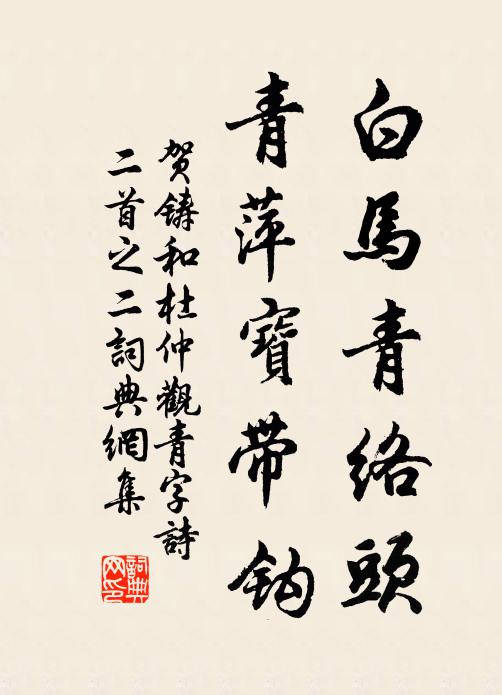 白馬青絡頭
青萍寶帶鈎
賀鑄和杜仲觀青字詩
二首之二詞典網集
詞典网印